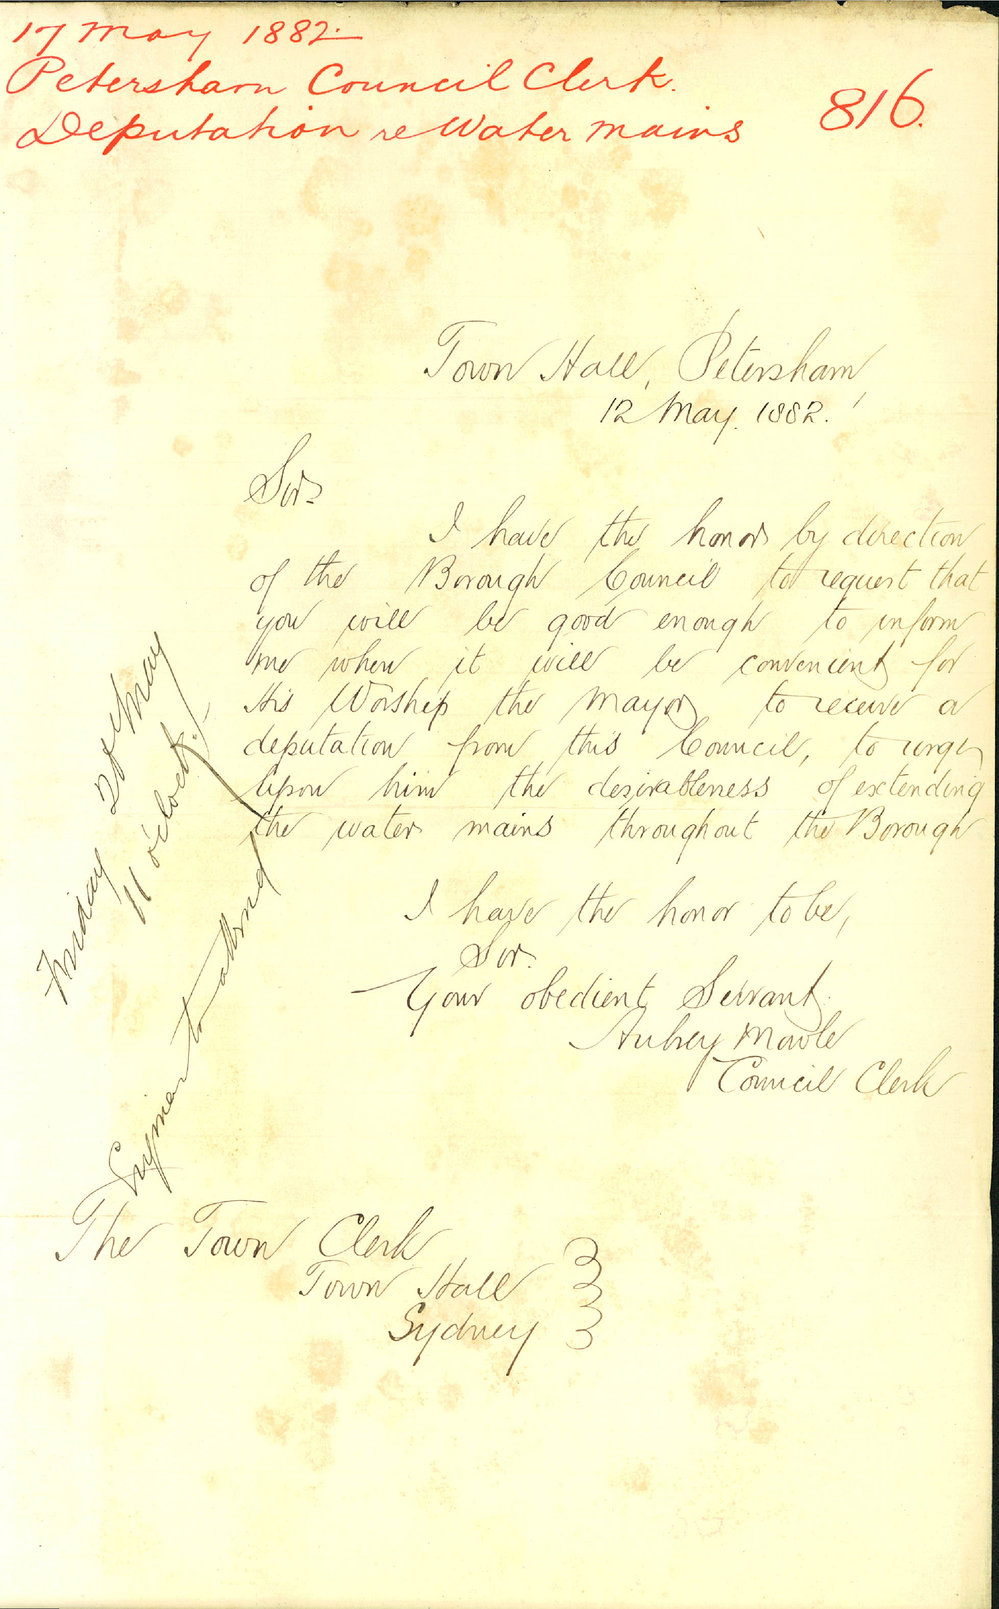 17 May 1882.
Petersham Council Clerk.
Deputation re Water mains
816.
Town Hall, Petersham,
12 May. 1882.
Sir,
I have the honor by direction
of the Borough Council to request that
you will be good enough to inform
me when it will be convenient for
His Worship the Mayor to receive a
deputation from this Council, to urge
upon him the desirableness of extending
the water mains throughout the Borough
I have the honor to be,
Sir.
Your obedient Servant.
Aubrey Mowle
Council Clerk
Friday 26th May
11 o'clock.
Engineer to attend
The Town Clerk
Town Hall
Sydney